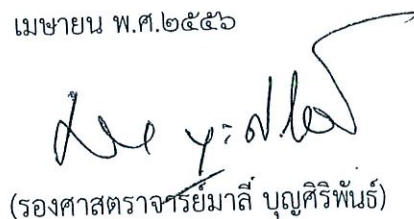 เมษายน พ.ศ.๒๕๕๖
(รองศาสตราจารย์มาลี บุญศิริพันธ์)